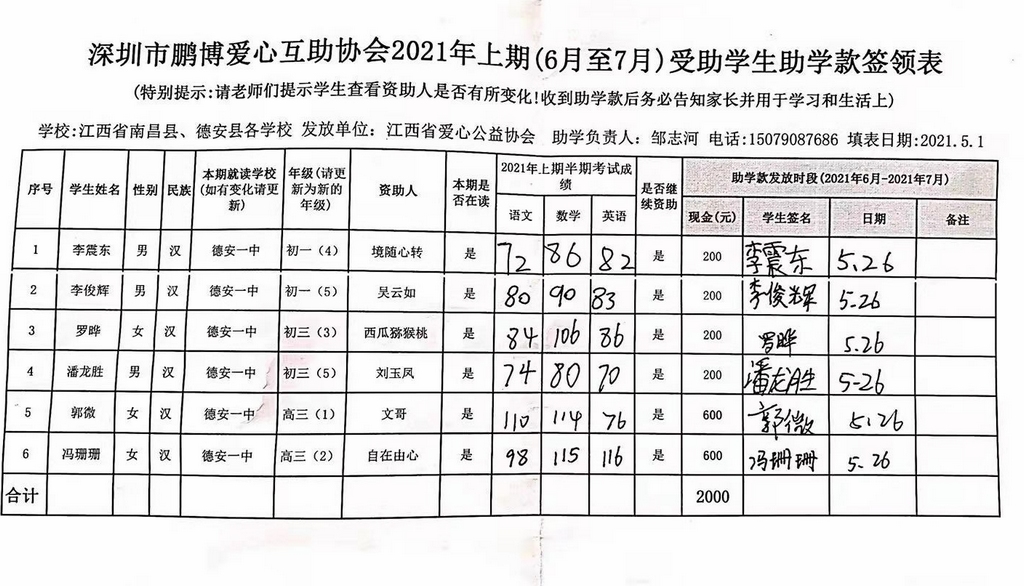 深圳市鹏博爱心互助协会2021年上期(6月至7月)受助学生助学款签领表
(特别提示:请老师们提示学生查看资助人是否有所变化!收到助学款后务必告知家长并用于学习和生活上)
学校:江西省南昌县、德安县各学校 发放单位：江西省爱心公益协会 助学负责人：邹志河 电话:15079087686 填表日期:2021.5.1
序号 学生姓名 性别 民族 本期就读学校(如有变化请更新) 年级(请更新为新的年级) 资助人 本期是否在读 2021年上期半期考试成绩 是否继续资助 助学款发放时段(2021年6月-2021年7月)
语文 数学 英语 现金(元) 学生签名 日期 备注
1 李震东 男 汉 德安一中 初一（4） 境随心转 是 72 86 82 是 200 李震东 5.26
2 李俊辉 男 汉 德安一中 初一（5） 吴云如 是 80 90 83 是 200 李俊辉 5.26
3 罗晔 女 汉 德安一中 初三（3） 西瓜猕猴桃 是 84 106 86 是 200 罗晔 5.26
4 潘龙胜 男 汉 德安一中 初三（5） 刘玉凤 是 74 80 70 是 200 潘龙胜 5-26
5 郭微 女 汉 德安一中 高三（1） 文哥 是 110 114 76 是 600 郭微 5.26
6 冯珊珊 女 汉 德安一中 高三（2） 自在由心 是 98 115 116 是 600 冯珊珊 5.26
合计 2000